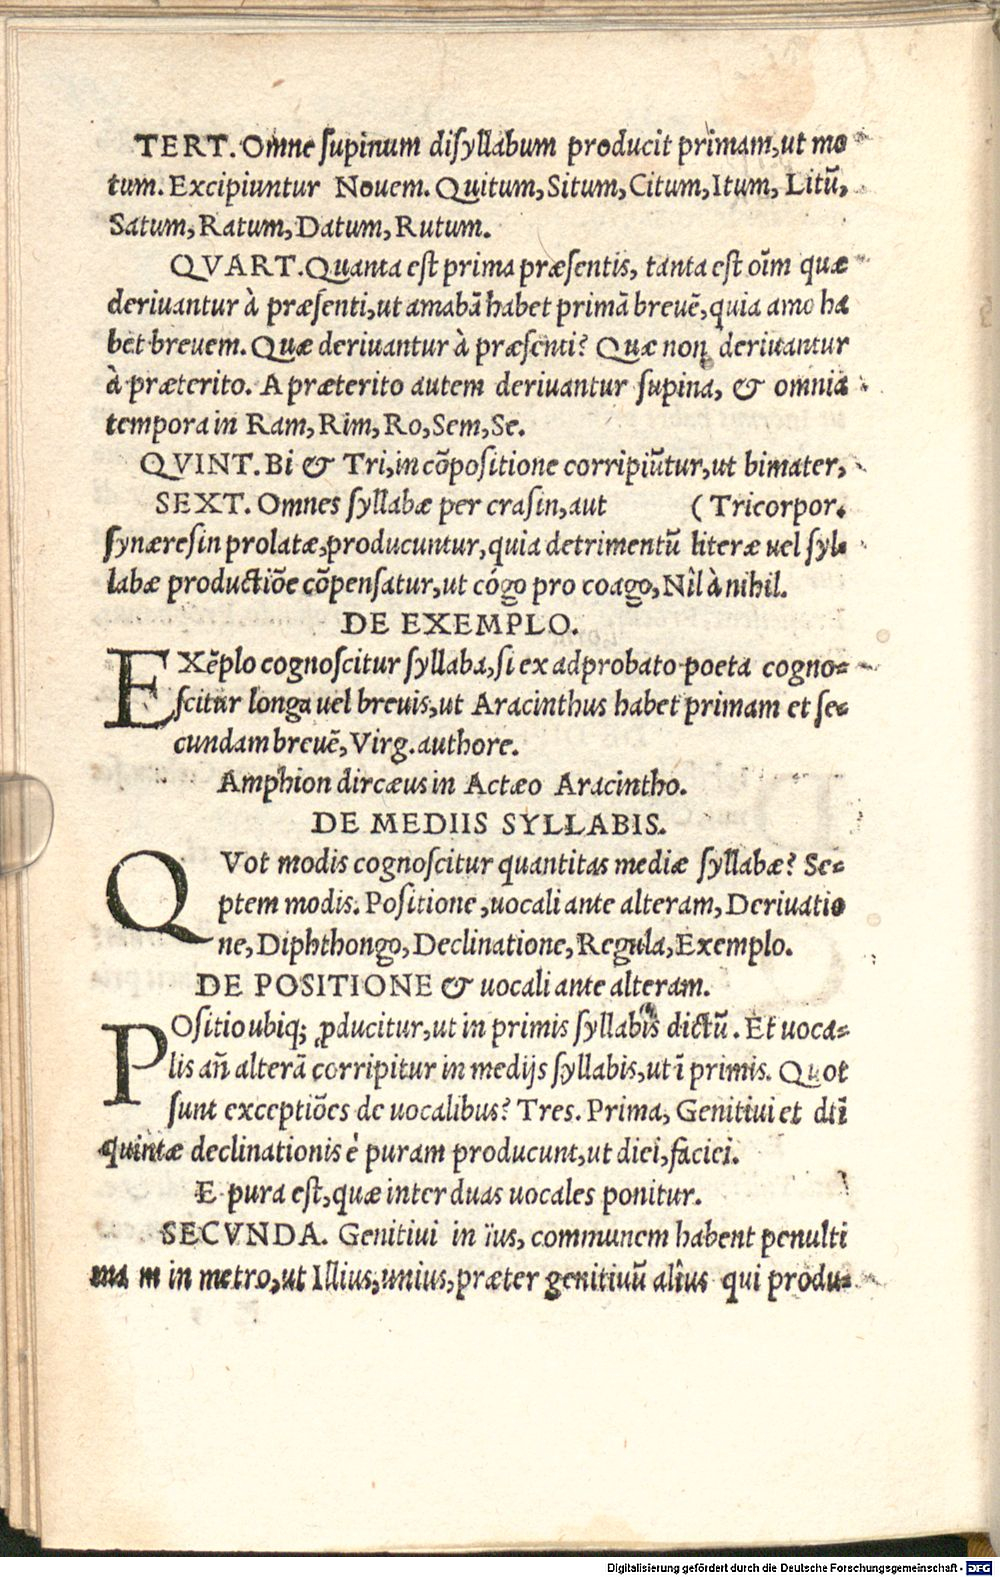 TERT. Omne ſupinum diſyllabum producit primam, ut mo
tum. Excipiuntur Nouem. Quitum, Situm, Citum, Itum, Litũ,
Satum, Ratum, Datum, Rutum.
QVART. Quanta eſt prima præſentis, tanta eſt oĩm quæ
deriuantur à præſenti, ut amabã habet primã breuẽ, quia amo ha
bet breuem. Quæ deriuantur à præſenti? Quæ non deriuantur
à præterito. A præterito autem deriuantur ſupina, & omnia
tempora in Ram, Rim, Ro, Sem, Se.
QVINT. Bi & Tri, in cõpoſitione corripiũtur, ut bimater,
SEXT. Omnes ſyllabæ per craſin, aut (Tricorpor.
ſynæreſin prolatæ, producuntur, quia detrimentũ literæ uel ſyl-
labæ productiõe cõpenſatur, ut cógo pro coago, Nîl à nihil.
DE EXEMPLO.
EXẽplo cognoſcitur ſyllaba, ſi ex adprobato poeta cogno-
ſcitur longa uel breuis, ut Aracinthus habet primam et ſe-
cundam breuẽ, Virg. authore.
Amphion dircæus in Actæo Aracintho.
DE MEDIIS SYLLABIS.
QVot modis cognoſcitur quantitas mediæ ſyllabæ? Se-
ptem modis. Poſitione, uocali ante alteram, Deriuatio
ne, Diphthongo, Declinatione, Regula, Exemplo.
DE POSITIONE & uocali ante alteram.
POſitio ubiq; ꝓducitur, ut in primis ſyllabis dictũ. Et uoca-
lis añ alterã corripitur in medijs ſyllabis, ut ĩ primis. Quot
ſunt exceptiões de uocalibus? Tres. Prima, Genitiui et dtĩ
quintæ declinationis è puram producunt, ut diei, faciei.
E pura eſt, quæ inter duas uocales ponitur.
SECVNDA. Genitiui in ïus, communem habent penulti
ma m in metro, ut Illius, unius, præter genitiuũ alîus qui produ-
Digitalisierung gefördert durch die Deutsche Forschungsgemeinschaft - DFG